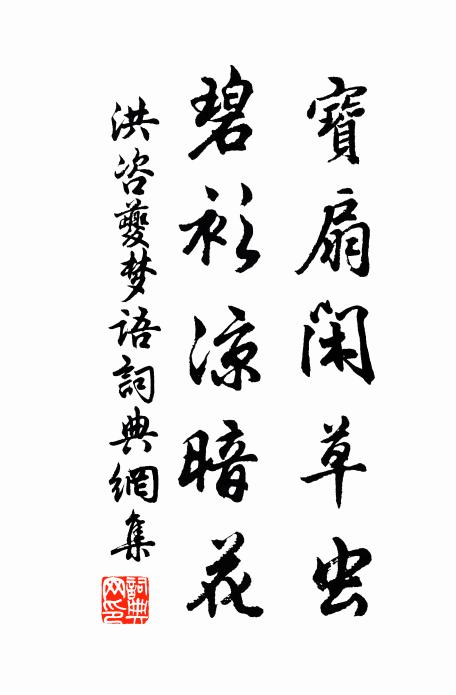 寶扇閑草虫
碧衫涼暗花
洪咨夔梦語詞典網集
詞典网印